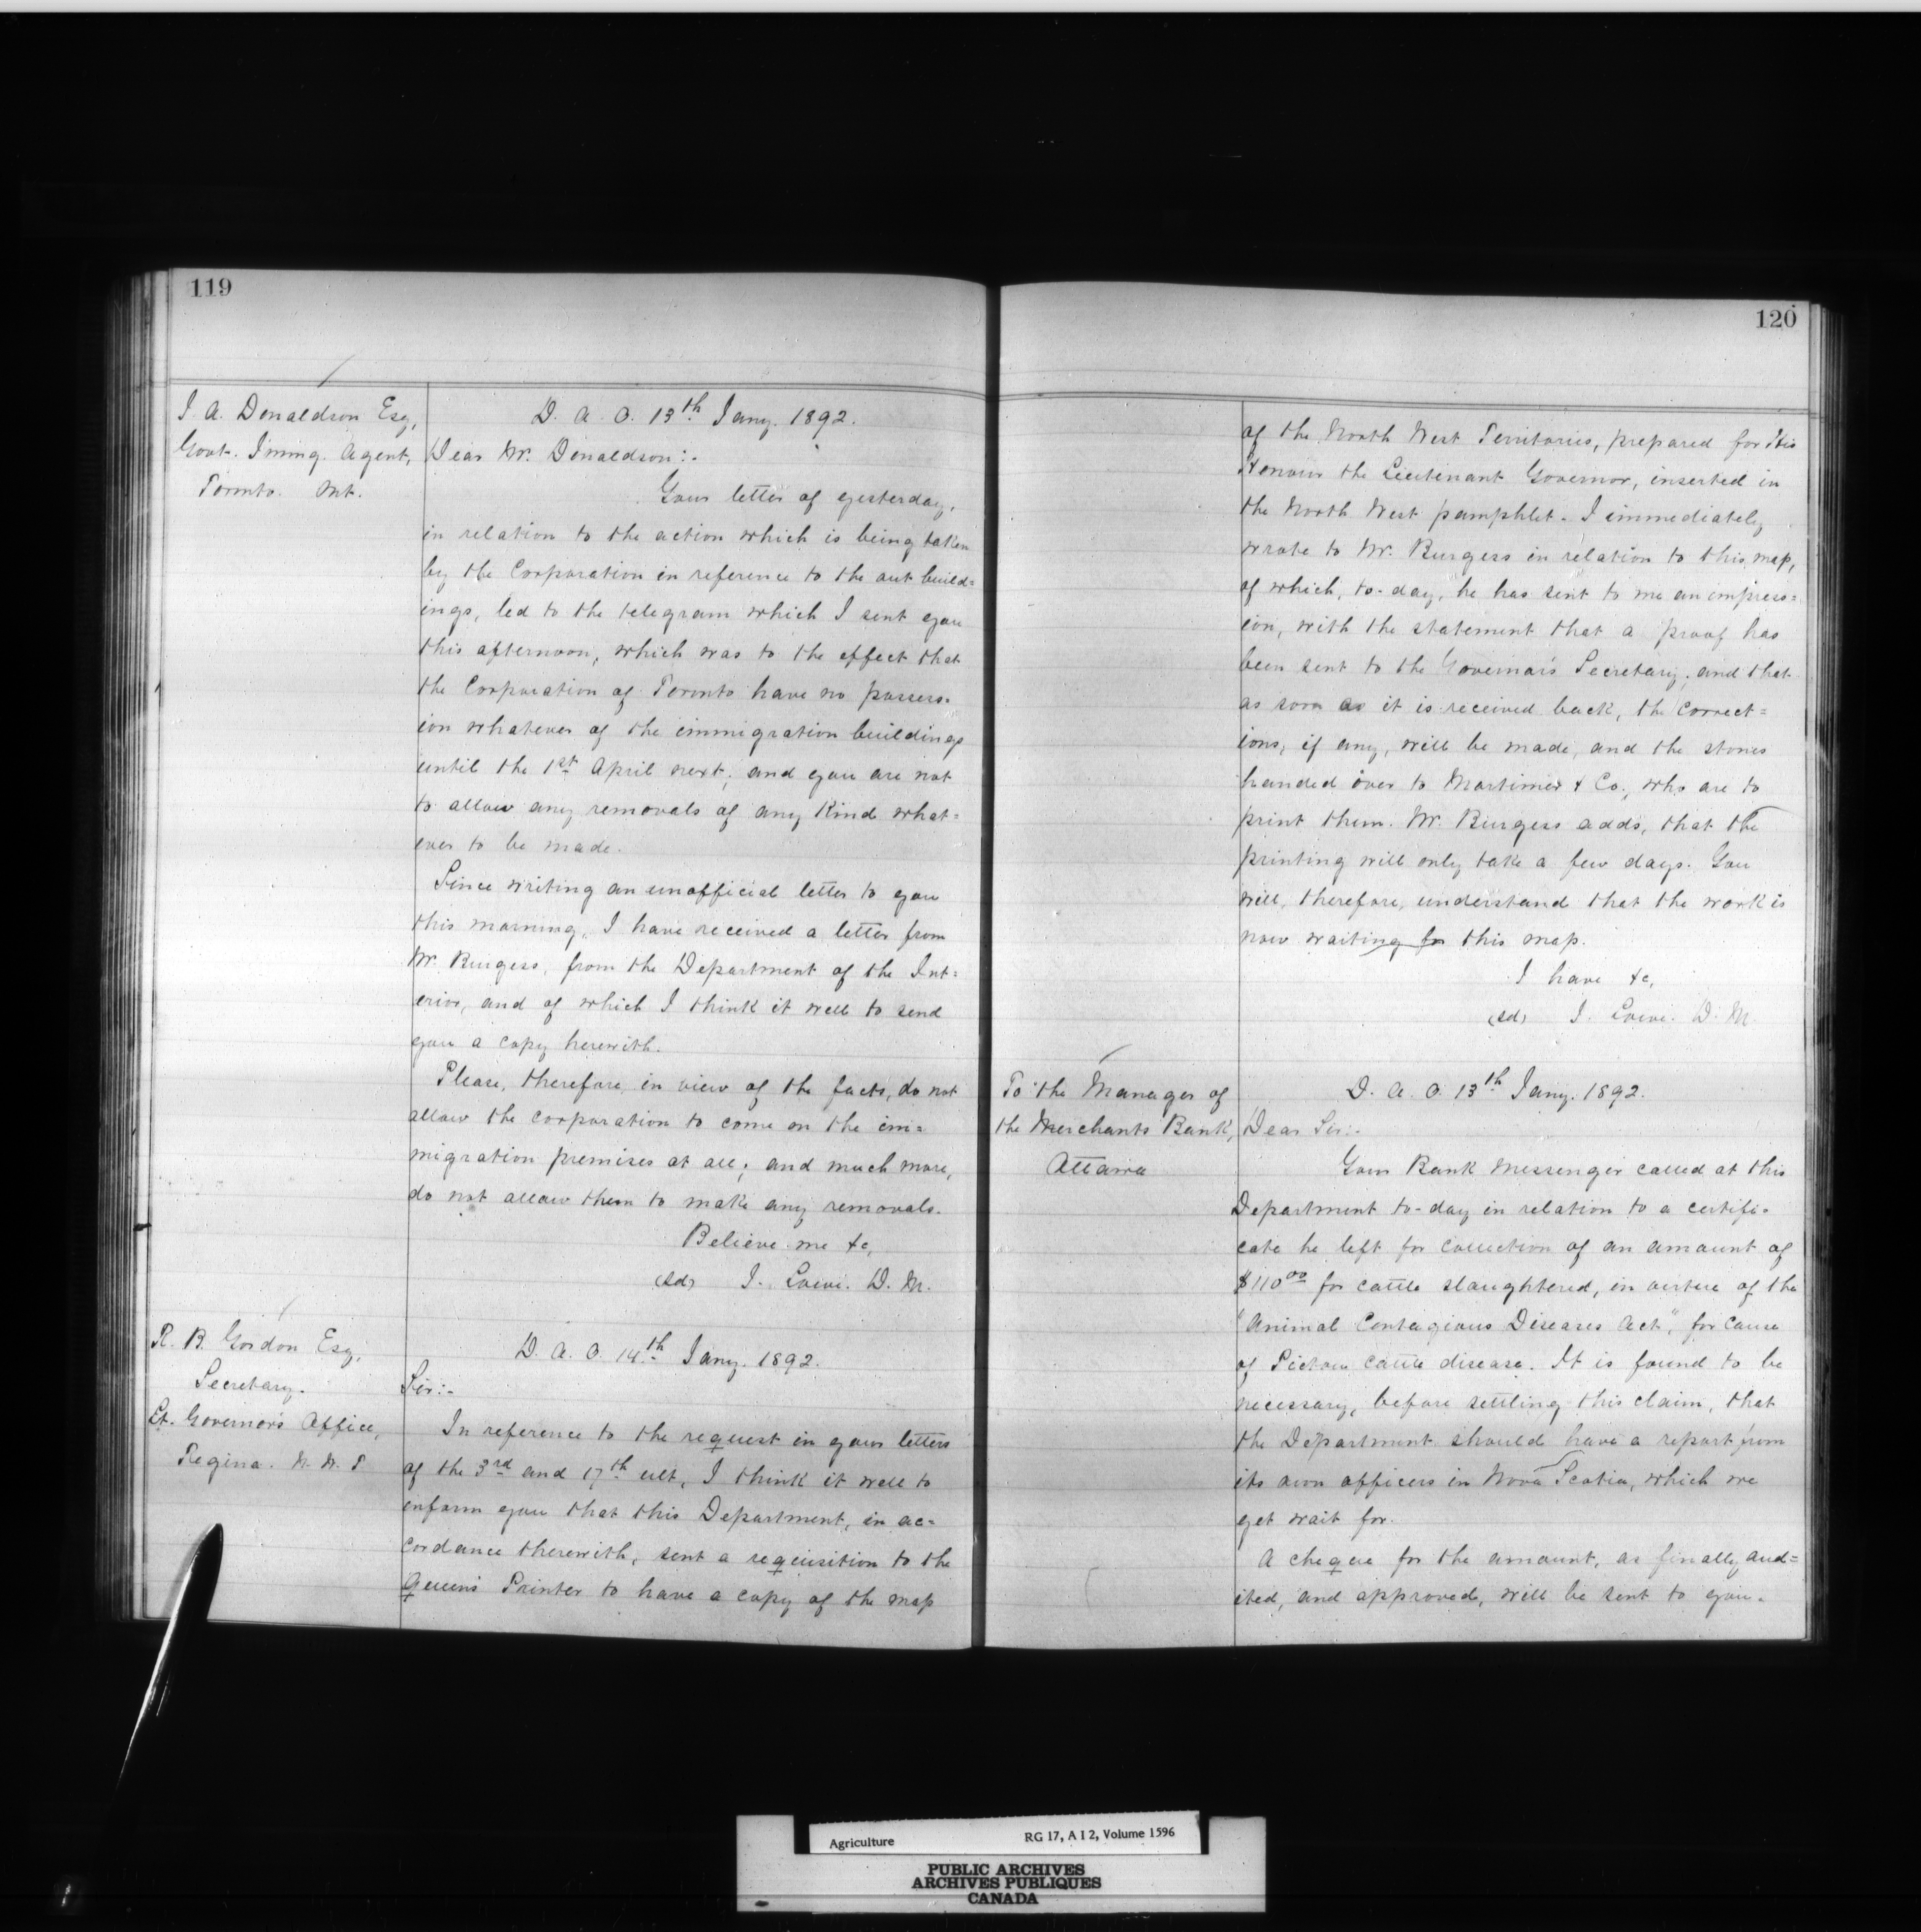 119
J. A. Donaldson Esq,
Govt. Immg. Agent,
Toronto. Ont.
D. A. O. 13th Jany. 1892.
Dear Mr. Donaldson:-
Your letter of yesterday,
in relation to the action which is being taken
by the Corporation in reference to the out build=
ings, led to the telegram which I sent you
this afternoon, which was to the effect that
the Corporation of Toronto have no possess-
ion whatever of the immigration buildings
until the 1st April next; and you are not
to allow any removals of any kind what=
ever to be made.
Since writing an unofficial letter to you
this morning, I have received a letter from
Mr. Burgess, from the Department of the Int=
erior, and of which I think it well to send
you a copy herewith.
Please, therefore, in view of the facts, do not
allow the corporation to come on the im=
migration premises at all; and much more,
do not allow them to make any removals.
Believe me &c,
(sd) J. Lowe. D. M.
R. B. Gordon Esq,
Secretary.
Lt. Governor's Office,
Regina. N. W. T
D. A. O. 14th Jany. 1892.
Sir:-
In reference to the request in your letters
of the 3rd and 17th ult, I think it well to
inform you that this Department, in ac=
cordance therewith, sent a requisition to the
Queen's Printer to have a copy of the map
120
of the North West Territories, prepared for His
Honour the Lieutenant Governor, inserted in
the North West pamphlet. I immediately
wrote to Mr. Burgess in relation to this map,
of which, to-day, he has sent to me an impress=
ion, with the statement that a proof has
been sent to the Governor's Secretary; and that
as soon as it is received back, the correct=
ions, if any, will be made, and the stones
handed over to Mortimer & Co., who are to
print them. Mr. Burgess adds, that the
printing will only take a few days. You
will, therefore, understand that the work is
now waiting for this map.
I have &c,
(sd) J. Lowe. D. M
To the Manager of
the Merchants Bank,
Ottawa
D. A. O. 13th Jany. 1892.
Dear Sir:-
Your Bank Messenger called at this
Department to-day in relation to a certifi-
cate he left for collection of an amount of
$110 00 for cattle slaughtered, in virtue of the
"Animal Contagious Diseases Act", for cause
of Pictou cattle disease. It is found to be
necessary, before settling this claim, that
the Department should have a report from
its own officers in Nova Scotia, which we
yet wait for.
A cheque for the amount, as finally aud=
ited, and approved, will be sent to you.
Agriculture
RG 17, A I 2, Volume 1596
PUBLIC ARCHIVES
ARCHIVES PUBLIQUES
CANADA